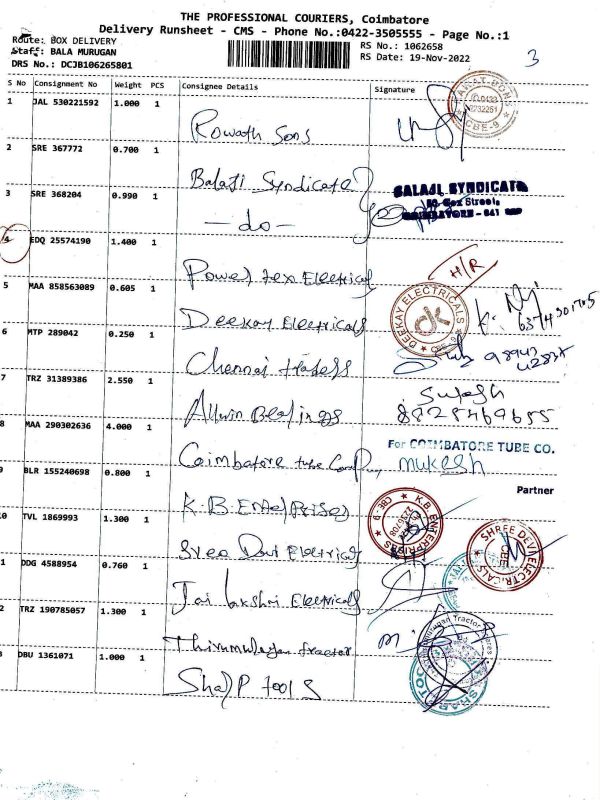 THE PROFESSIONAL COURIERS, Coimbatore
Delivery Runsheet - CMS - Phone No.:0422-3505555 - Page No.:1
Route: BOX DELIVERY
Staff: BALA MURUGAN
DRS No.: DCJB106265801
RS No.: 1062658
RS Date: 19-Nov-2022
3
S No Consignment No Weight PCS Consignee Details Signature
1 JAL 530221592 1.000 1
Rowath Sons
CBE-9
2 SRE 367772 0.700 1
Balaji Syndicate
BALAJI SYNDICATE
Street,
3 SRE 368204 0.990 1
- do -
4 EDQ 25574190 1.400 1
Power tex Electrical
H/R
5 MAA 858563089 0.605 1
Deekay Electricals
DEEKAY ELECTRICALS
dk
6 MTP 289042 0.250 1
Chennai traders
7 TRZ 31389386 2.550 1
Allwin Bearings
Sujesh
8825469655
8 MAA 290302636 4.000 1
Coimbatore tube Company
For COIMBATORE TUBE CO.
mukesh
Partner
9 BLR 155240698 0.800 1
K.B. Enterprises
K.B. ENTERPRISES
CBE-9
0 TVL 1869993 1.300 1
Sree Devi Electricals
SHREE DEVI ELECTRICALS
1 DDG 4588954 0.760 1
Jai lakshmi Electricals
2 TRZ 190785057 1.300 1
Thirumurugan tractor
Murugan Tractor
3 DBU 1361071 1.000 1
Sharp tools